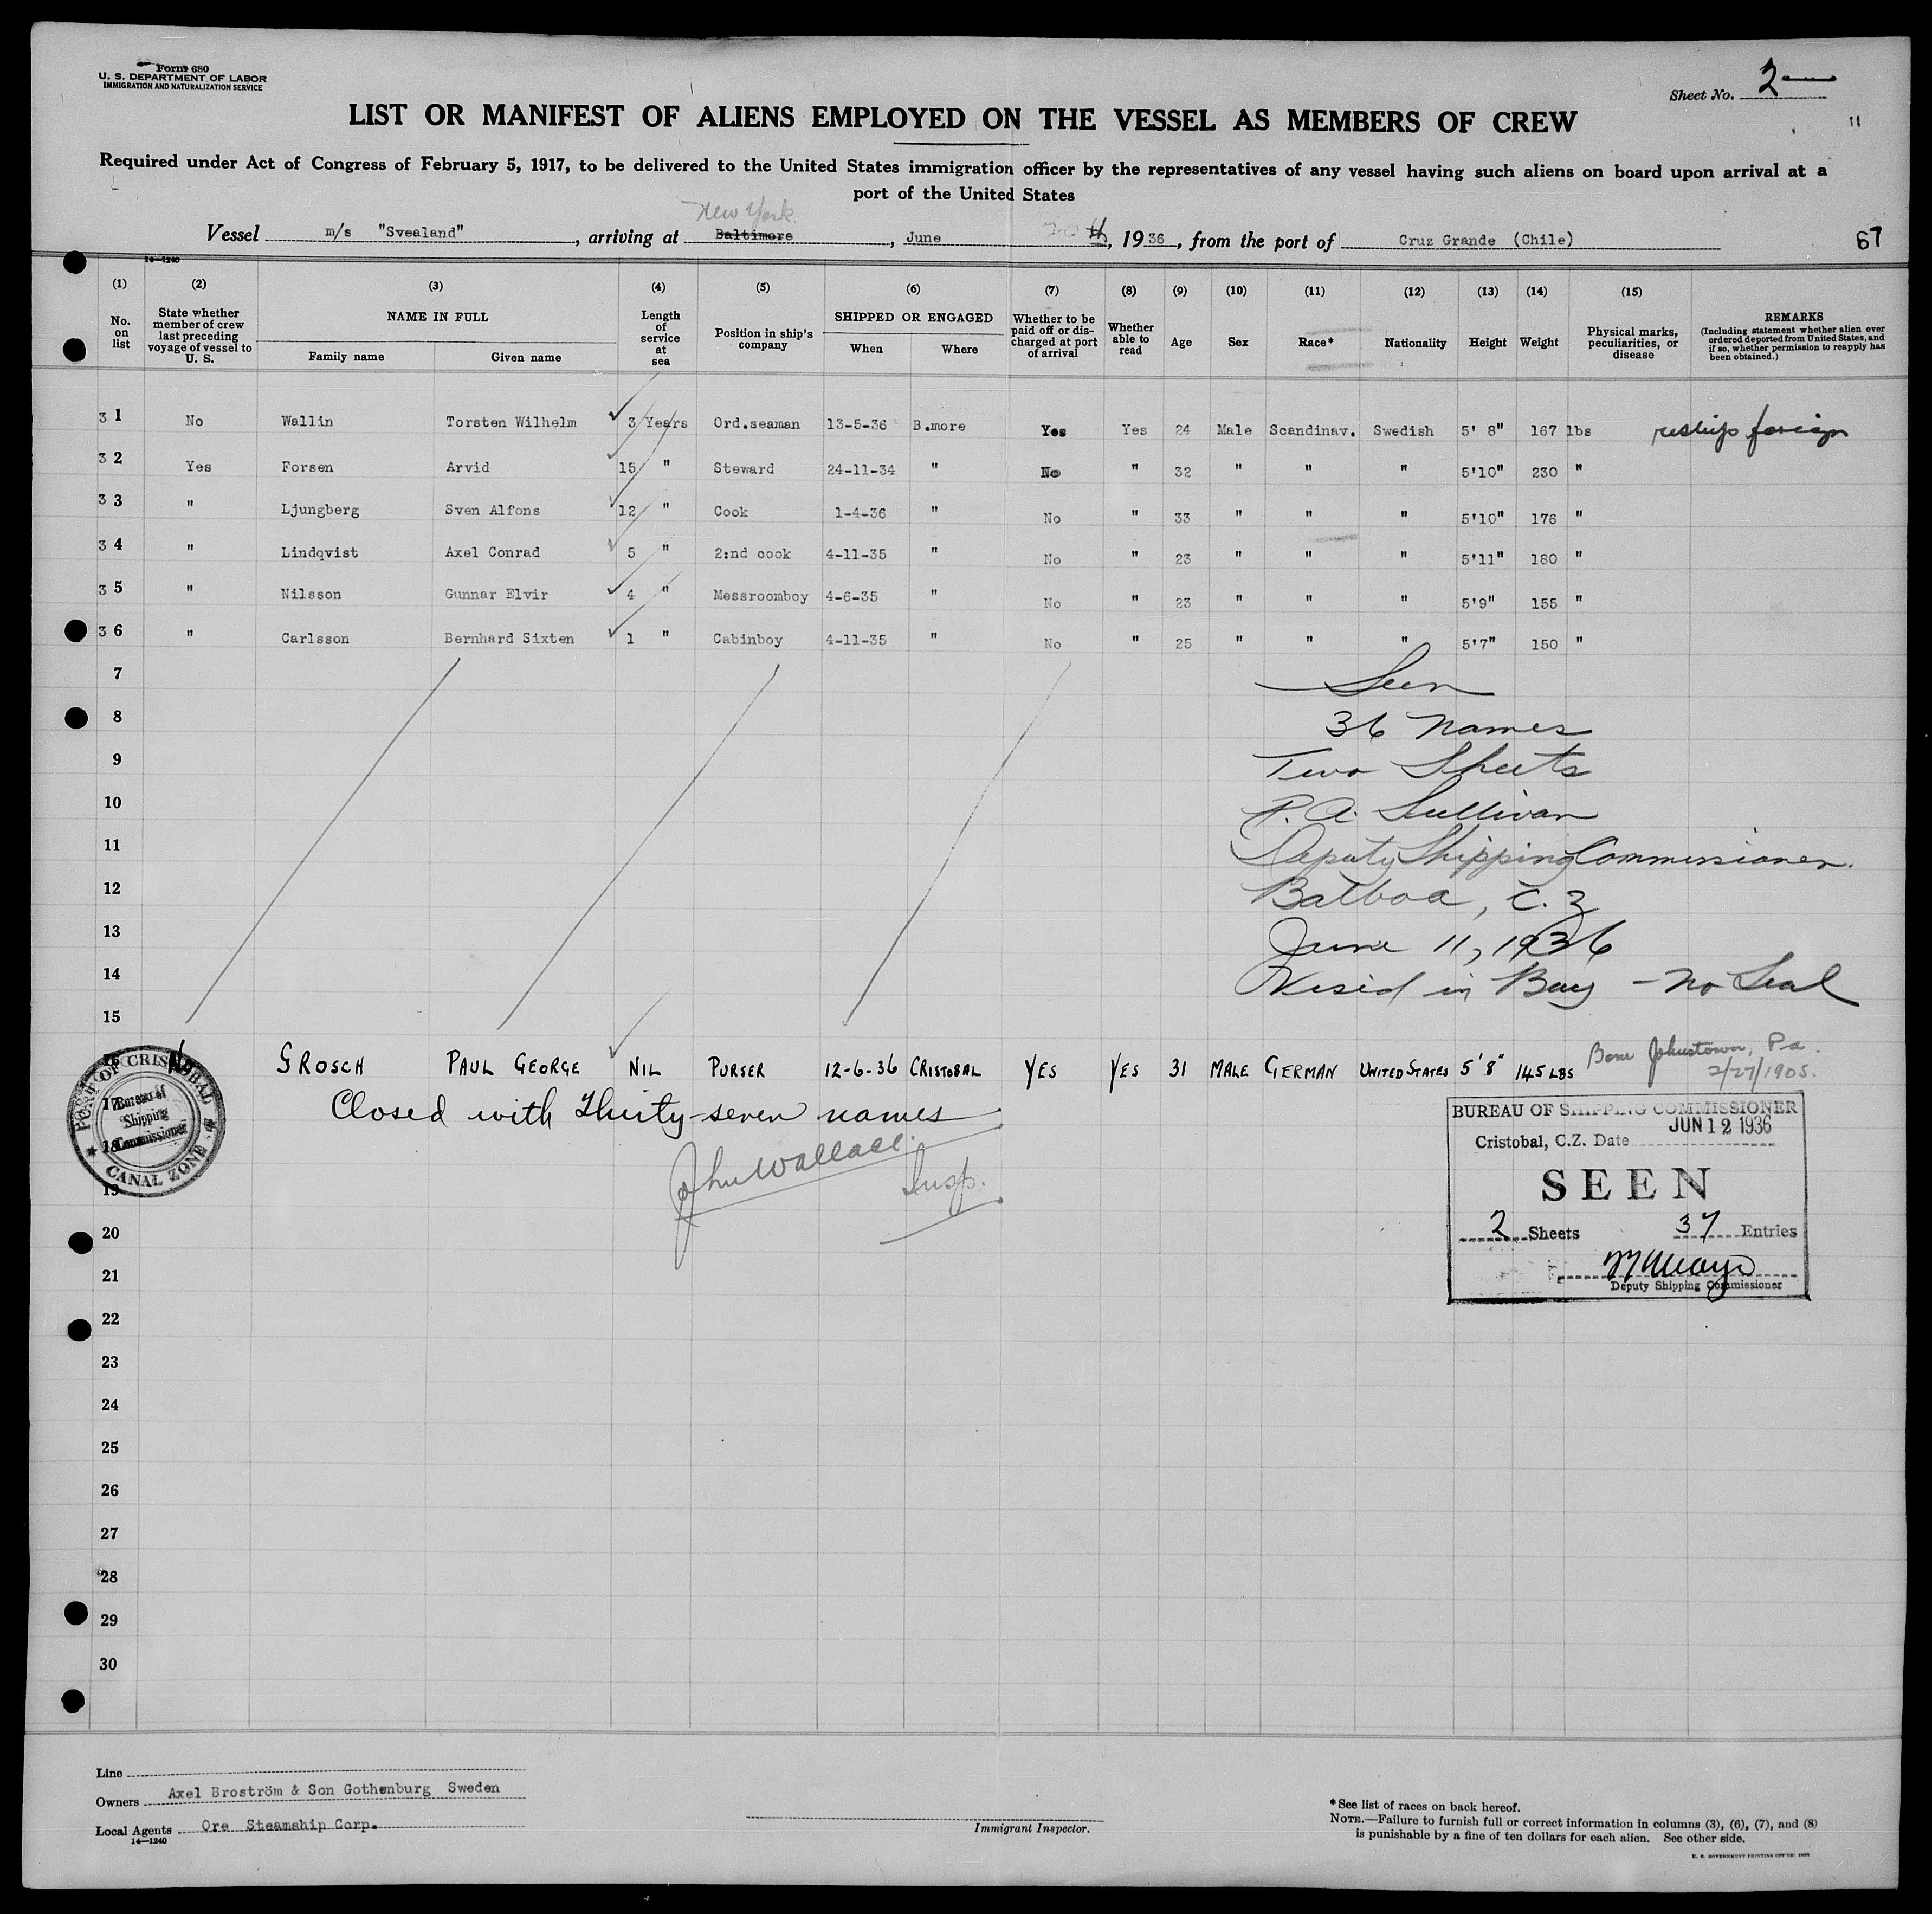 Form 680
U. S. DEPARTMENT OF LABOR
IMMIGRATION AND NATURALIZATION SERVICE
Sheet No. 2
LIST OR MANIFEST OF ALIENS EMPLOYED ON THE VESSEL AS MEMBERS OF CREW
11
Required under Act of Congress of February 5, 1917, to be delivered to the United States immigration officer by the representatives of any vessel having such aliens on board upon arrival at a
port of the United States
New York
Vessel m/s "Svealand", arriving at Baltimore, June 20 th, 1936, from the port of Cruz Grande (Chile)
67
14—1240
(1) (2) (3) (4) (5) (6) (7) (8) (9) (10) (11) (12) (13) (14) (15)
No. on list
State whether member of crew last preceding voyage of vessel to U. S.
NAME IN FULL
Family name Given name
Length of service at sea
Position in ship's company
SHIPPED OR ENGAGED
When Where
Whether to be paid off or discharged at port of arrival
Whether able to read
Age
Sex
Race*
Nationality
Height
Weight
Physical marks, peculiarities, or disease
REMARKS
(Including statement whether alien ever ordered deported from United States, and if so, whether permission to reapply has been obtained.)
31 No Wallin Torsten Wilhelm 3 Years Ord.seaman 13-5-36 B.more Yes Yes 24 Male Scandinav. Swedish 5' 8" 167 lbs reships foreign
32 Yes Forsen Arvid 15 " Steward 24-11-34 " No " 32 " " " 5'10" 230 "
33 " Ljungberg Sven Alfons 12 " Cook 1-4-36 " No " 33 " " " 5'10" 176 "
34 " Lindqvist Axel Conrad 5 " 2:nd cook 4-11-35 " No " 23 " " " 5'11" 180 "
35 " Nilsson Gunnar Elvir 4 " Messroomboy 4-6-35 " No " 23 " " " 5'9" 155 "
36 " Carlsson Bernhard Sixten 1 " Cabinboy 4-11-35 " No " 25 " " " 5'7" 150 "
7
Seen
8
36 Names
9
Two Sheets
10
P. A. Sullivan
11
Deputy Shipping Commissioner.
12
Balboa, C. Z
13
June 11, 1936
14
Visied in Bay - No Seal
15
No GROSCH PAUL GEORGE NIL PURSER 12-6-36 CRISTOBAL YES YES 31 MALE GERMAN UNITED STATES 5'8" 145 LBS Born Johnstown, Pa.
2/27/1905.
PORT OF CRISTOBAL
Bureau of
Shipping
Commissioner
CANAL ZONE
17
18
Closed with Thirty-seven names
John Wallace.
Insp.
BUREAU OF SHIPPING COMMISSIONER
JUN 12 1936
Cristobal, C.Z. Date
SEEN
2 Sheets 37 Entries
Deputy Shipping Commissioner
19
20
21
22
23
24
25
26
27
28
29
30
Line
Owners Axel Broström & Son Gothenburg Sweden
Local Agents Ore Steamship Corp.
14—1240
Immigrant Inspector.
*See list of races on back hereof.
NOTE.—Failure to furnish full or correct information in columns (3), (6), (7), and (8)
is punishable by a fine of ten dollars for each alien. See other side.